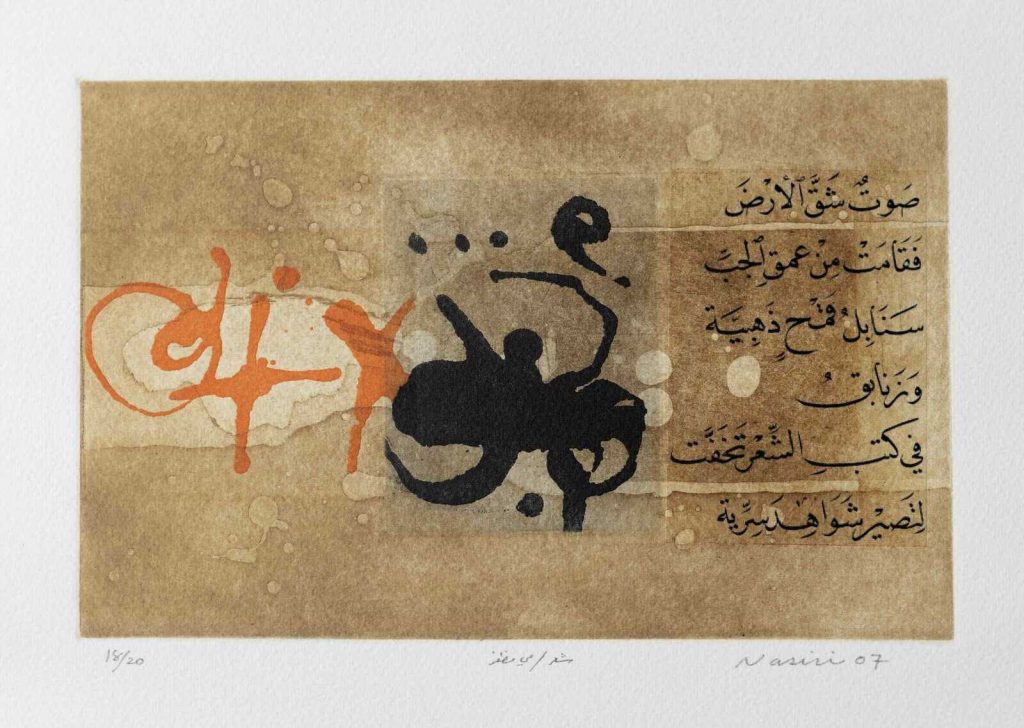 صَوتٌ شَقَّ ٱلأرْضَ
فَقَامَتْ مِنْ عمقِ ٱلجبَّ
سَنَابِلُ قَمْحٍ ذَهَبِيَّة
وَزَنابقُ
في كتبِ الشِّعْرِ تَخَفَّت
لِتَصِيْرَ شَوَاهِدَ سِرِّية
18/20
Nasiri 07